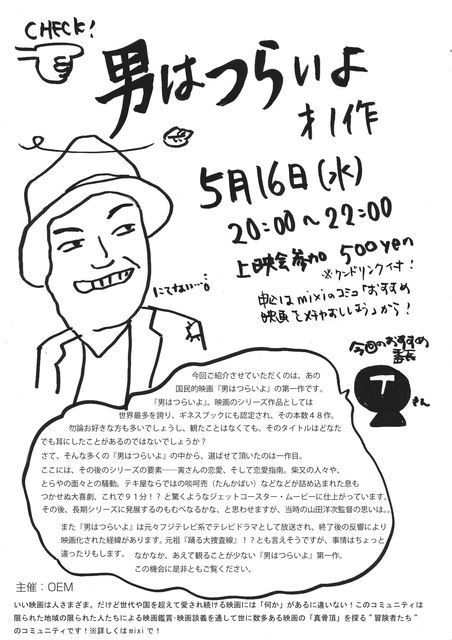 CHECK!
男はつらいよ
オ1作
5月16日(水)
20:00〜22:00
上映会参加 500yen
※ワンドリンク付!
申込はmixiのコミュ「おすすめ
映画をメチャおししよう」から!
にてない…。
今回のおすすめ
番長
T
さん
今回ご紹介させていただくのは、あの
国民的映画『男はつらいよ』の第一作です。
『男はつらいよ』。映画のシリーズ作品としては
世界最多を誇り、ギネスブックにも認定され、その本数48作。
勿論お好きな方も多いでしょうし、観たことはなくても、そのタイトルはどなた
でも耳にしたことがあるのではないでしょうか?
さて、そんな多くの『男はつらいよ』の中から、選ばせて頂いたのは一作目。
ここには、その後のシリーズの要素──寅さんの恋愛、そして恋愛指南。柴又の人々や、
とらやの面々との騒動。テキ屋ならではの啖呵売(たんかばい)などなどが詰め込まれた息も
つかせぬ大喜劇、これで91分!?と驚くようなジェットコースター・ムービーに仕上がっています。
その後、長期シリーズに発展するのもむべなるかな、と思わせますが、当時の山田洋次監督の思いは。。
また『男はつらいよ』は元々フジテレビ系でテレビドラマとして放送され、終了後の反響により
映画化された経緯があります。元祖『踊る大捜査線』!?とも言えそうですが、事情はちょっと
違ったりもします。 なかなか、あえて観ることが少ない『男はつらいよ』第一作。
この機会に是非ともご覧ください。
主催:OEM
いい映画は人さまざま。だけど世代や国を超えて愛され続ける映画には「何か」があるに違いない!このコミュニティは
限られた地域の限られた人たちによる映画鑑賞・映画談義を通して世に数多ある映画の「真骨頂」を探る"冒険者たち"
のコミュニティです!※詳しくはmixiで!